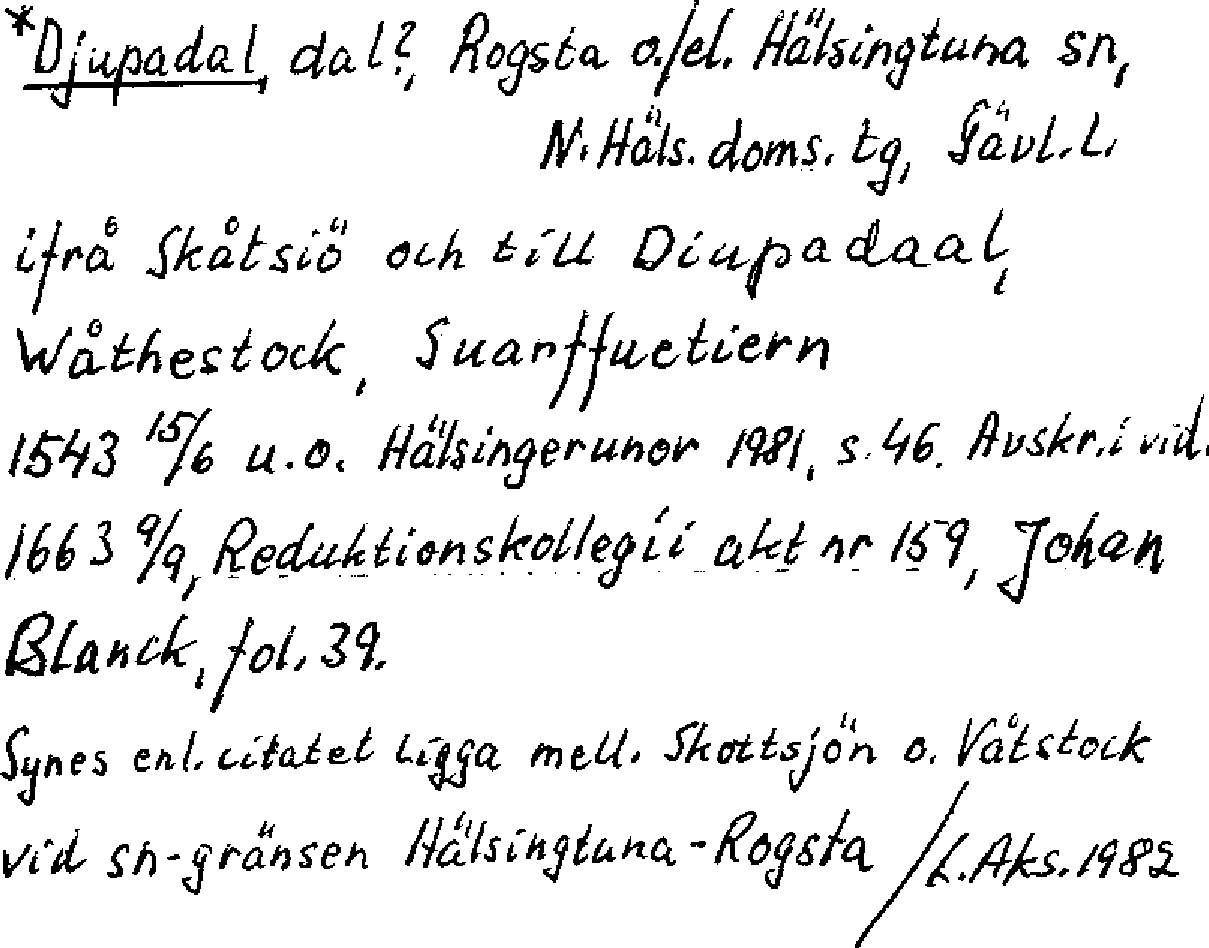 *Djupadal, dal?, Rogsta o./el. Hälsingtuna sn,
N. Häls. doms. tg, Gävl. L.
ifrå Skåtsiö och till Diupadaal,
Wåthestock, Suarffuetiern
1543 15/6 u.o. Hälsingerunor 1981, s. 46. Avskr. i vid.
1663 9/9, Reduktionskollegii akt nr 159, Johan
Blanck, fol. 39.
Synes enl. citatet ligga mell. Skottsjön o. Våtstock
vid sn-gränsen Hälsingtuna-Rogsta /L. Aks. 1982